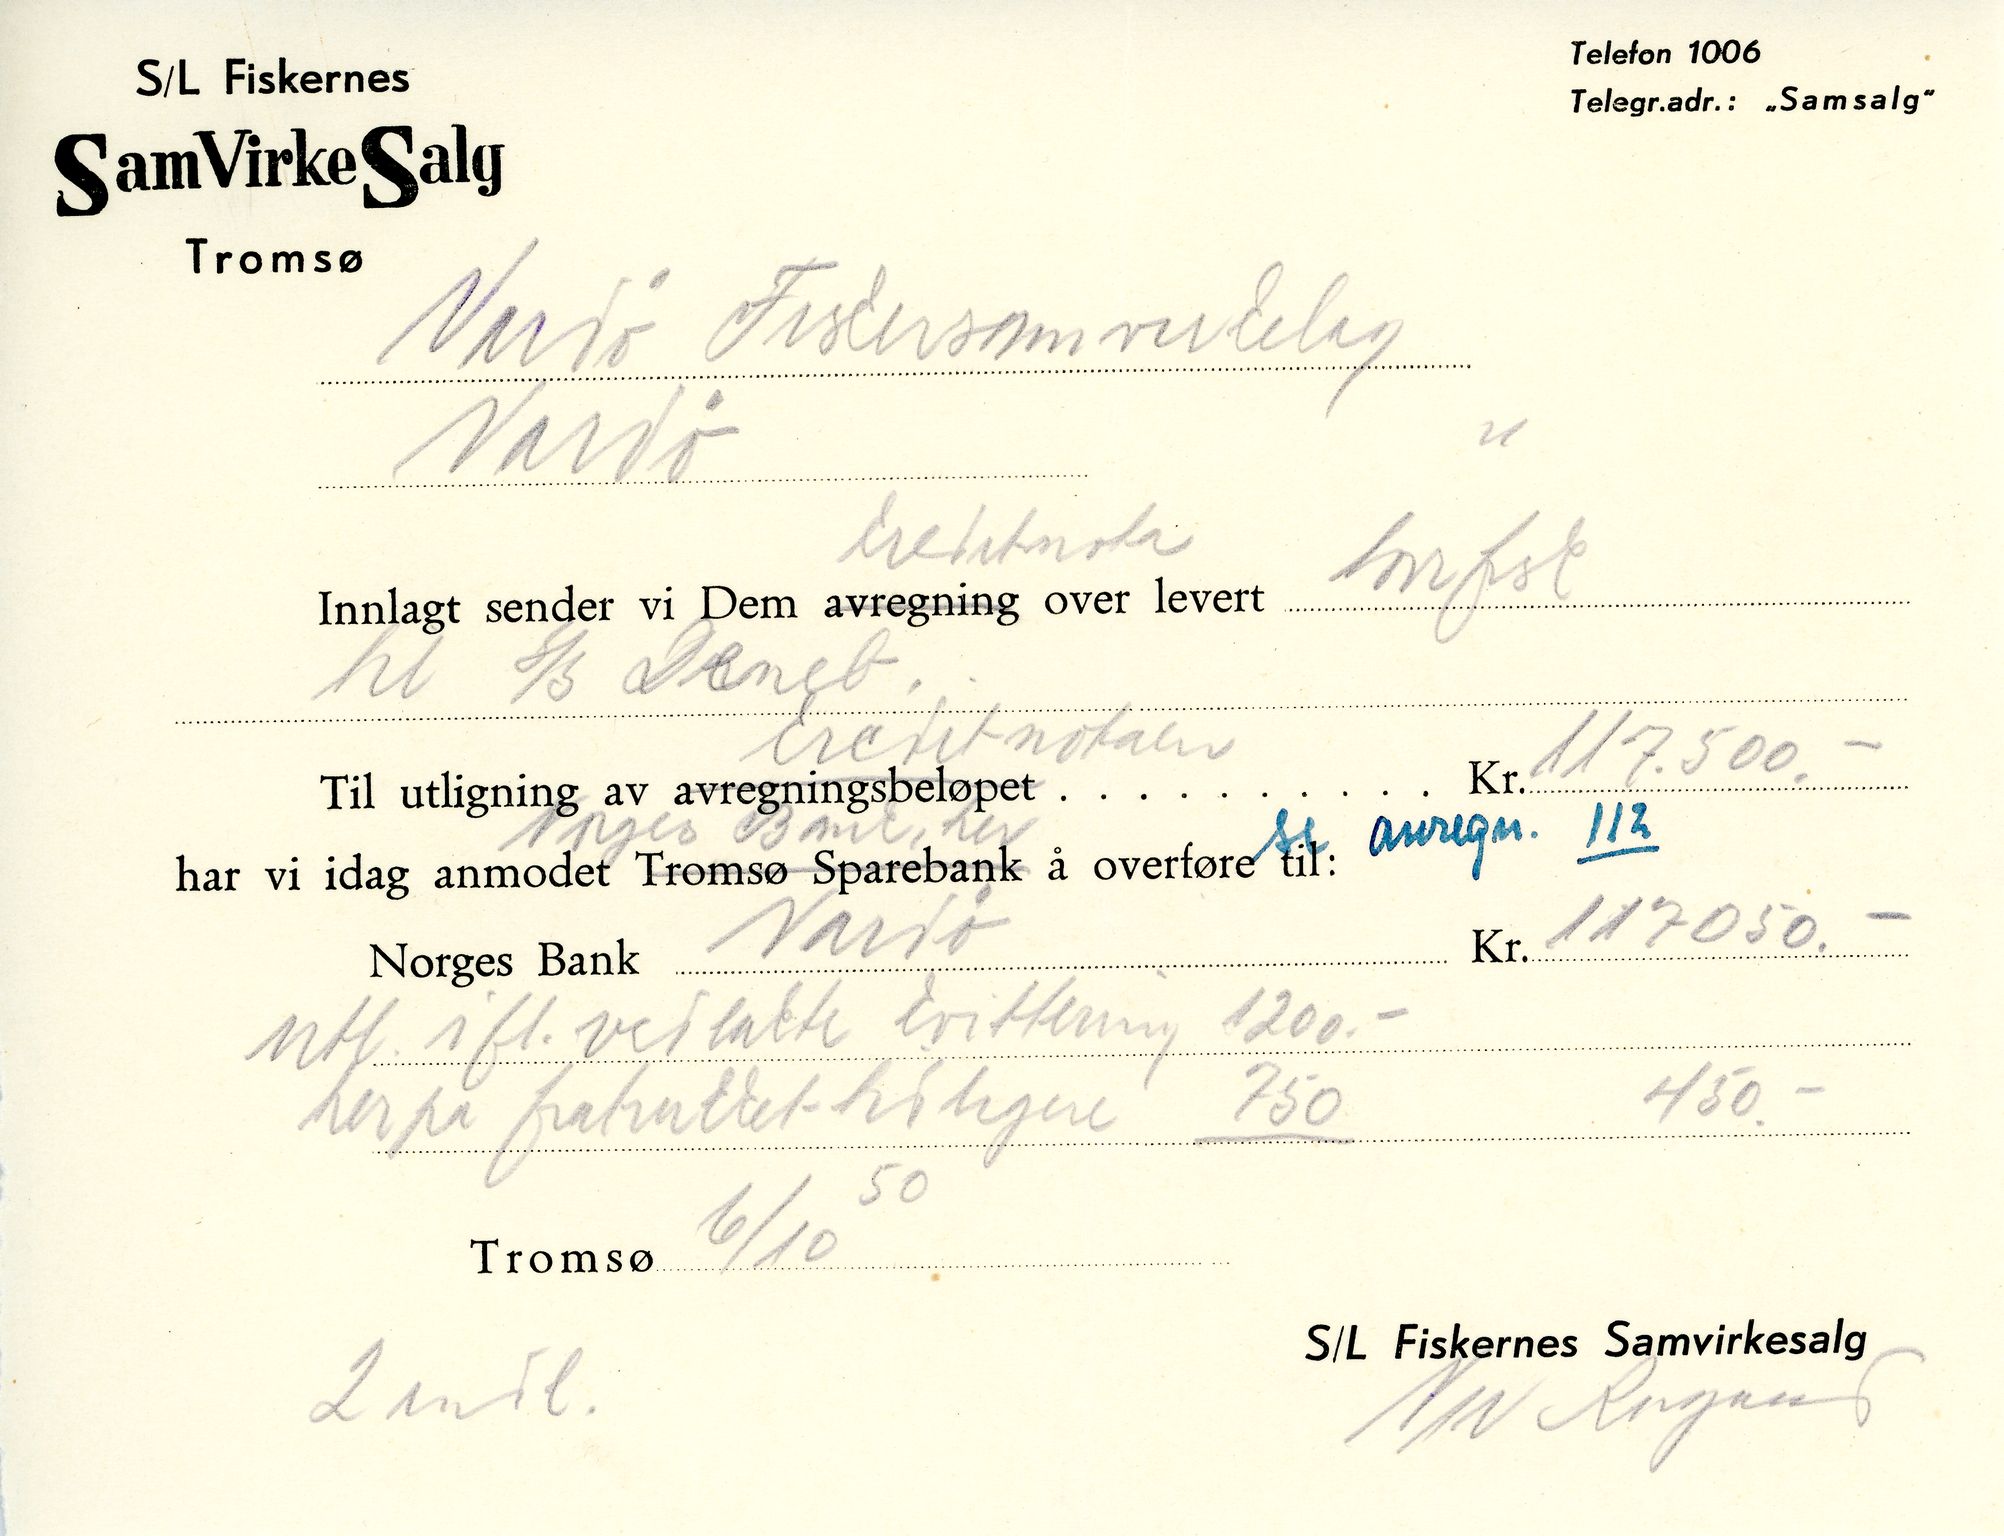 S/L Fiskernes
SamVirkeSalg
Tromsø
Telefon 1006
Telegr.adr.: „Samsalg"
Vardö Fiskersamvirkelag
Vardö "
kreditnota
Innlagt sender vi Dem avregning over levert tørrfisk
til S/S Deneb.
kreditnotaen
Til utligning av avregningsbeløpet . . . . . . . . . . Kr. 117.500.-
Norges Bank, her
se avregn. 112
har vi idag anmodet Tromsø Sparebank å overføre til:
Norges Bank Vardö Kr. 117050.-
utl. ifl. vedlakte kvittering 1200.-
her på fratrukket tidligere 750 450.-
Tromsø 6/10 50
S/L Fiskernes Samvirkesalg
2 indl.